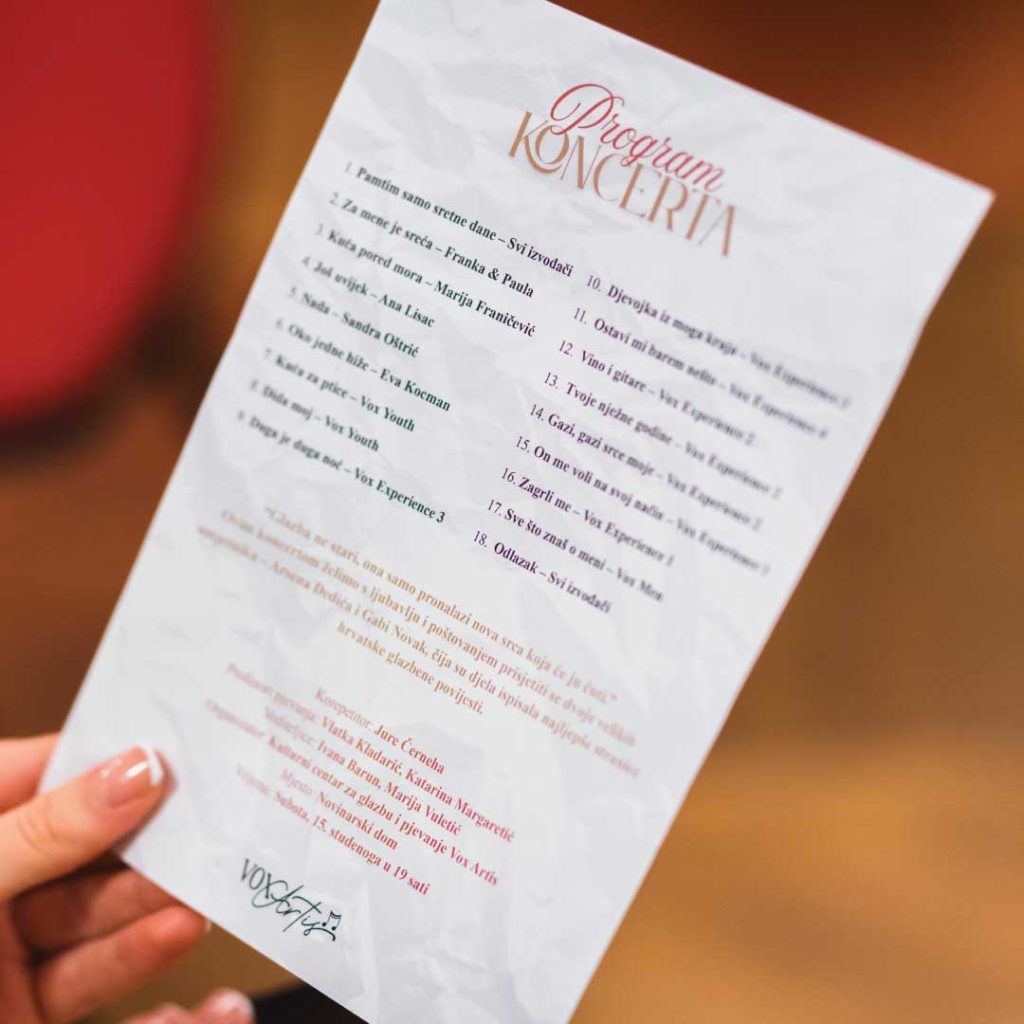 Program
KONCERTA
1. Pamtim samo sretne dane – Svi izvođači
2. Za mene je sreća – Franka & Paula
3. Kuća pored mora – Marija Franičević
4. Još uvijek – Ana Lisac
5. Nada – Sandra Oštrić
6. Oko jedne hiže – Eva Kocman
7. Kuća za ptice – Vox Youth
8. Dida moj – Vox Youth
9. Duga je duga noć – Vox Experience 3
10. Djevojka iz moga kraja – Vox Experience
11. Ostavi mi barem nešto – Vox Experience
12. Vino i gitare – Vox Experience 2
13. Tvoje nježne godine – Vox Experience
14. Gazi, gazi srce moje – Vox Experience 2
15. On me voli na svoj način – Vox Experience
16. Zagrli me – Vox Experience 1
17. Sve što znaš o meni – Vox Men
18. Odlazak – Svi izvođači
"Glazba ne stari, ona samo pronalazi nova srca koja će ju čuti."
Ovim koncertom želimo s ljubavlju i poštovanjem prisjetiti se dvoje velikih
umjetnika – Arsena Dedića i Gabi Novak, čija su djela ispisala najljepše stranice
hrvatske glazbene povijesti.
Korepetitor: Jure Černeha
Profesori pjevanja: Vlatka Kladarić, Katarina Margaretić
Voditeljice: Ivana Barun, Marija Vuletić
Organizator: Kulturni centar za glazbu i pjevanje Vox Artis
Mjesto: Novinarski dom
Vrijeme: Subota, 15. studenoga u 19 sati
VOX Artis